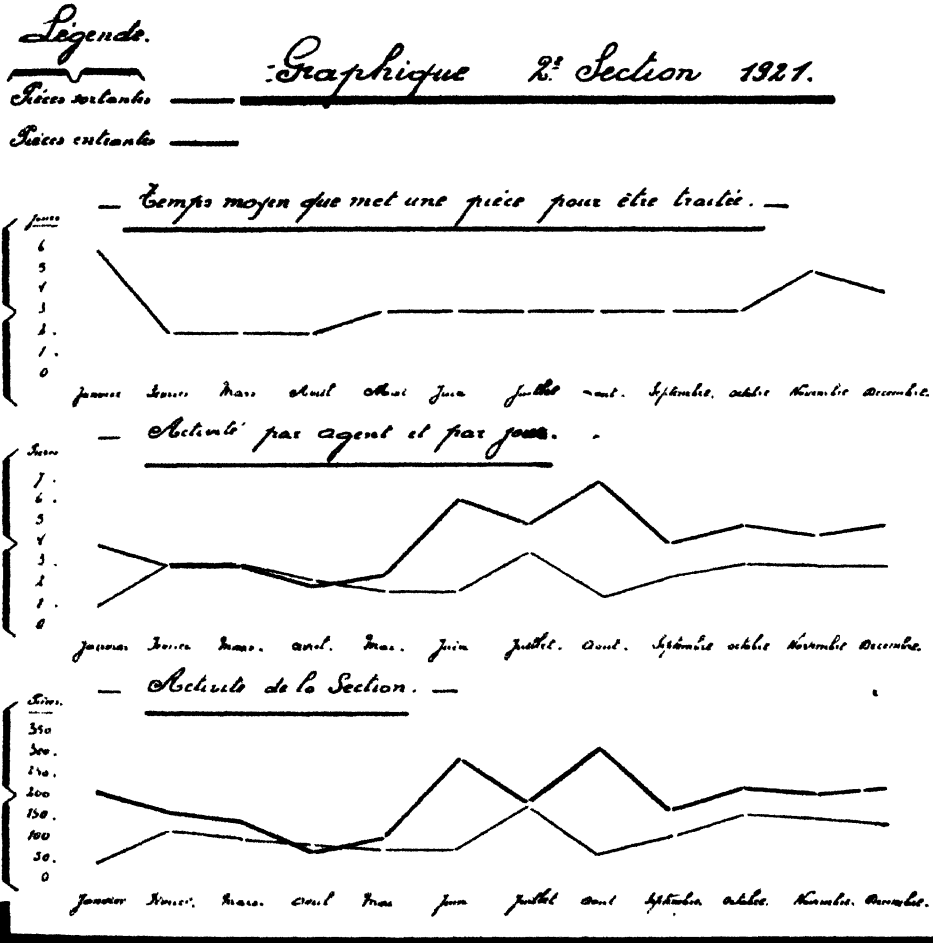 Légende.
Graphique 2e Section 1921.
Pièces sortantes
Pièces entrantes
— Temps moyen que met une pièce pour être traitée. —
Jours
6
5
4
3
2
1
0
Janvier Février Mars Avril Mai Juin Juillet Aout. Septembre. octobre Novembre Decembre.
— Activité par agent et par jour.
7
6
5
4
3
2
1
0
Janvier Fevrier Mars. avril. Mai. Juin Juillet. Aout. Septembre octobre Novembre Decembre.
— Activité de la Section. —
Pièces.
350
300.
250.
200
150.
100
50.
0
Janvier Février. Mars. avril Mai Juin Juillet Aout Septembre. octobre. Novembre. Decembre.